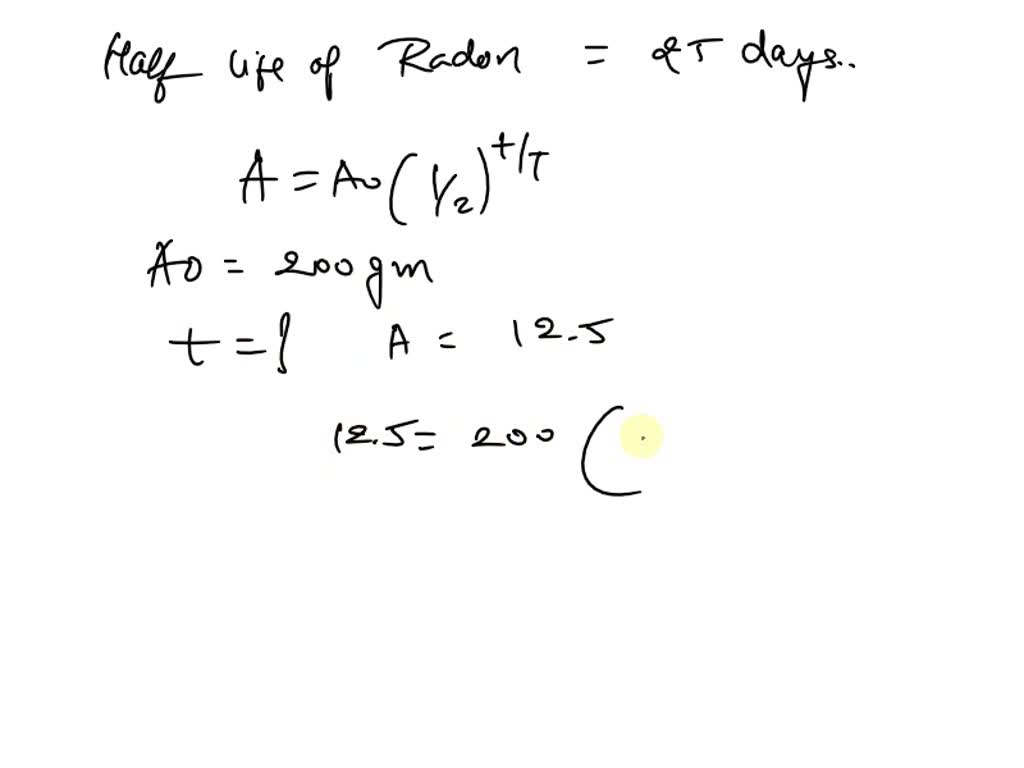 Half life of Radon = 25 days..
A = A0 (1/2)^t/T
A0 = 200 gm
t = ? A = 12.5
12.5 = 200 (